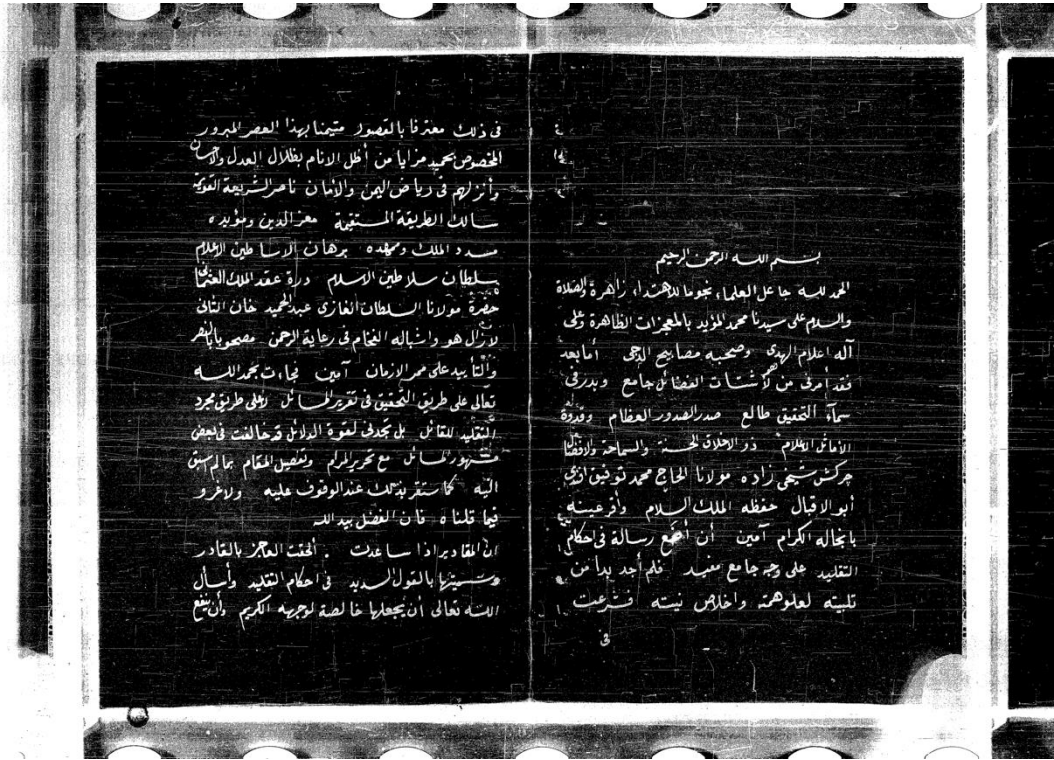 بسم الله الرحمن الرحيم
الحمد لله جاعل العلماء نجوما للاهتداء زاهرة والصلاة
والسلام على سيدنا محمد المؤيد بالمعجزات الظاهرة وعلى
آله اعلام الهدى وصحبه مصابيح الدجى أما بعد
فقد امرنى من لأشتات الفضائل جامع وبدر فى
سماء التحقيق طالع صدر الصدور العظام وقدوة
الأماثل الاعلام ذو الاخلاق الحسنة والسماحة والافضال
جركس شيخى زاده مولانا الحاج محمد توفيق افندى
أبو الاقبال حفظه الملك السلام وأقر عينه
بانجاله الكرام آمين أن أضع رسالة فى احكام
التقليد على وجه جامع مفيد فلم أجد بدا من
تلبيته لعلو همته واخلاص نيته فشرعت
فى
فى ذلك معترفا بالقصور متيمنا بهذا العصر المبرور
المخصوص بحميد مزايا من أظل الانام بظلال العدل والاحسان
وأنزلهم فى رياض اليمن والأمان ناصر الشريعة القويمة
سالك الطريقة المستقيمة معز الدين ومؤيده
مسدد الملك وممهده برهان الاساطين الاعلام
سلطان سلاطين الاسلام درة عقد الملك العثمانى
حضرة مولانا السلطان الغازى عبد الحميد خان الثانى
لازال هو واشباله الفخام فى رعاية الرحمن مصحوبا بالنصر
والتأييد على ممر الازمان آمين فجاءت بحمد الله
تعالى على طريق التحقيق فى تقرير المسائل لا على طريق مجرد
التقليد للقائل بل تجدنى لقوة الدلائل قد خالفت فى بعض
مشهور المسائل مع تحرير المرام وتفصيل المقام بما لم اسبق
اليه كما ستقر بذلك عند الوقوف عليه ولا غرو
فيما قلناه فان الفضل بيد الله
ان المقادير اذا ساعدت ألحقت العاجز بالقادر
وسميتها بالقول السديد فى احكام التقليد وأسأل
الله تعالى أن يجعلها خالصة لوجهه الكريم وأن ينفع